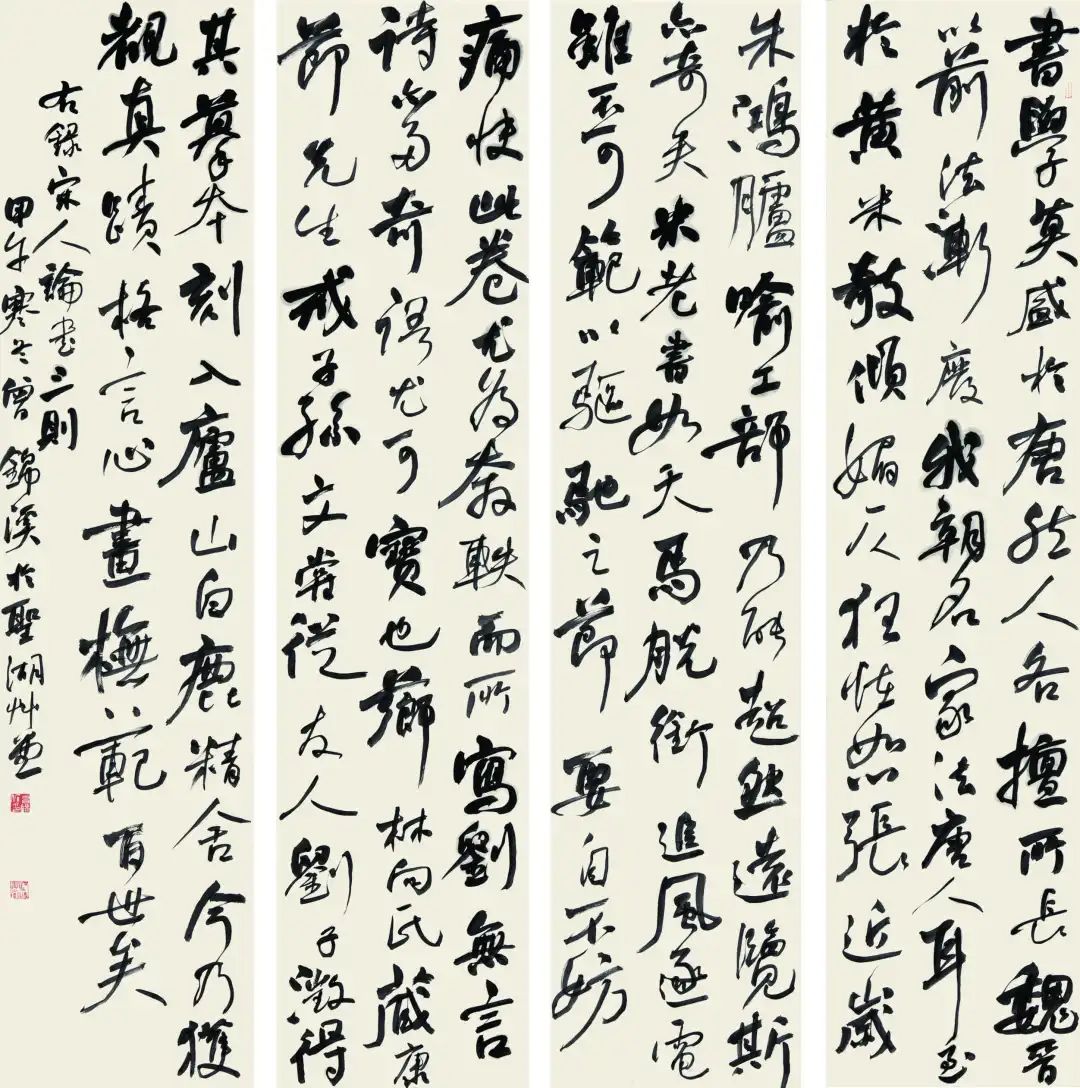 書學莫盛於唐然人各擅所長魏晉
以前法漸廢我朝名家法唐人耳至
於黃米敧傾媚仄狂怪怒張近歲
朱鴻臚喻工部乃能超然遠覽斯
亦奇矣米老書如天馬脫銜追風逐電
雖不可範以驅馳之節要自不妨
痛快此卷尤為奔軼而所寫劉無言
詩亦多奇語尤可寶也薌林向氏藏康
節先生戒子孫文嘗從友人劉子澂得
其摹本刻入廬山白鹿精舍今乃獲
觀真蹟格言心畫橅範百世矣
右錄宋人論書三則
甲午寒冬曾錦溪於聖湖艸